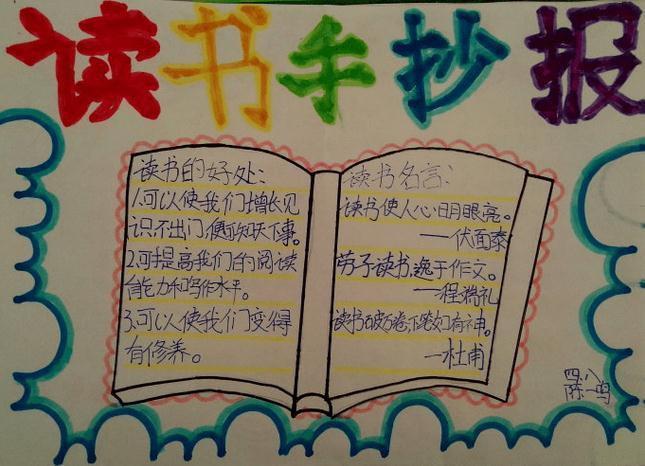 读书手抄报
读书的好处：
1.可以使我们增长见
识，不出门便可知天下事。
2.可提高我们的阅读
能力和写作水平。
3.可以使我们变得
有修养。
读书名言：
读书使人心明眼亮。
——伏面泰
劳于读书，逸于作文。
——程端礼
读书破万卷，下笔如有神。
—杜甫
四、八
陈一鸣